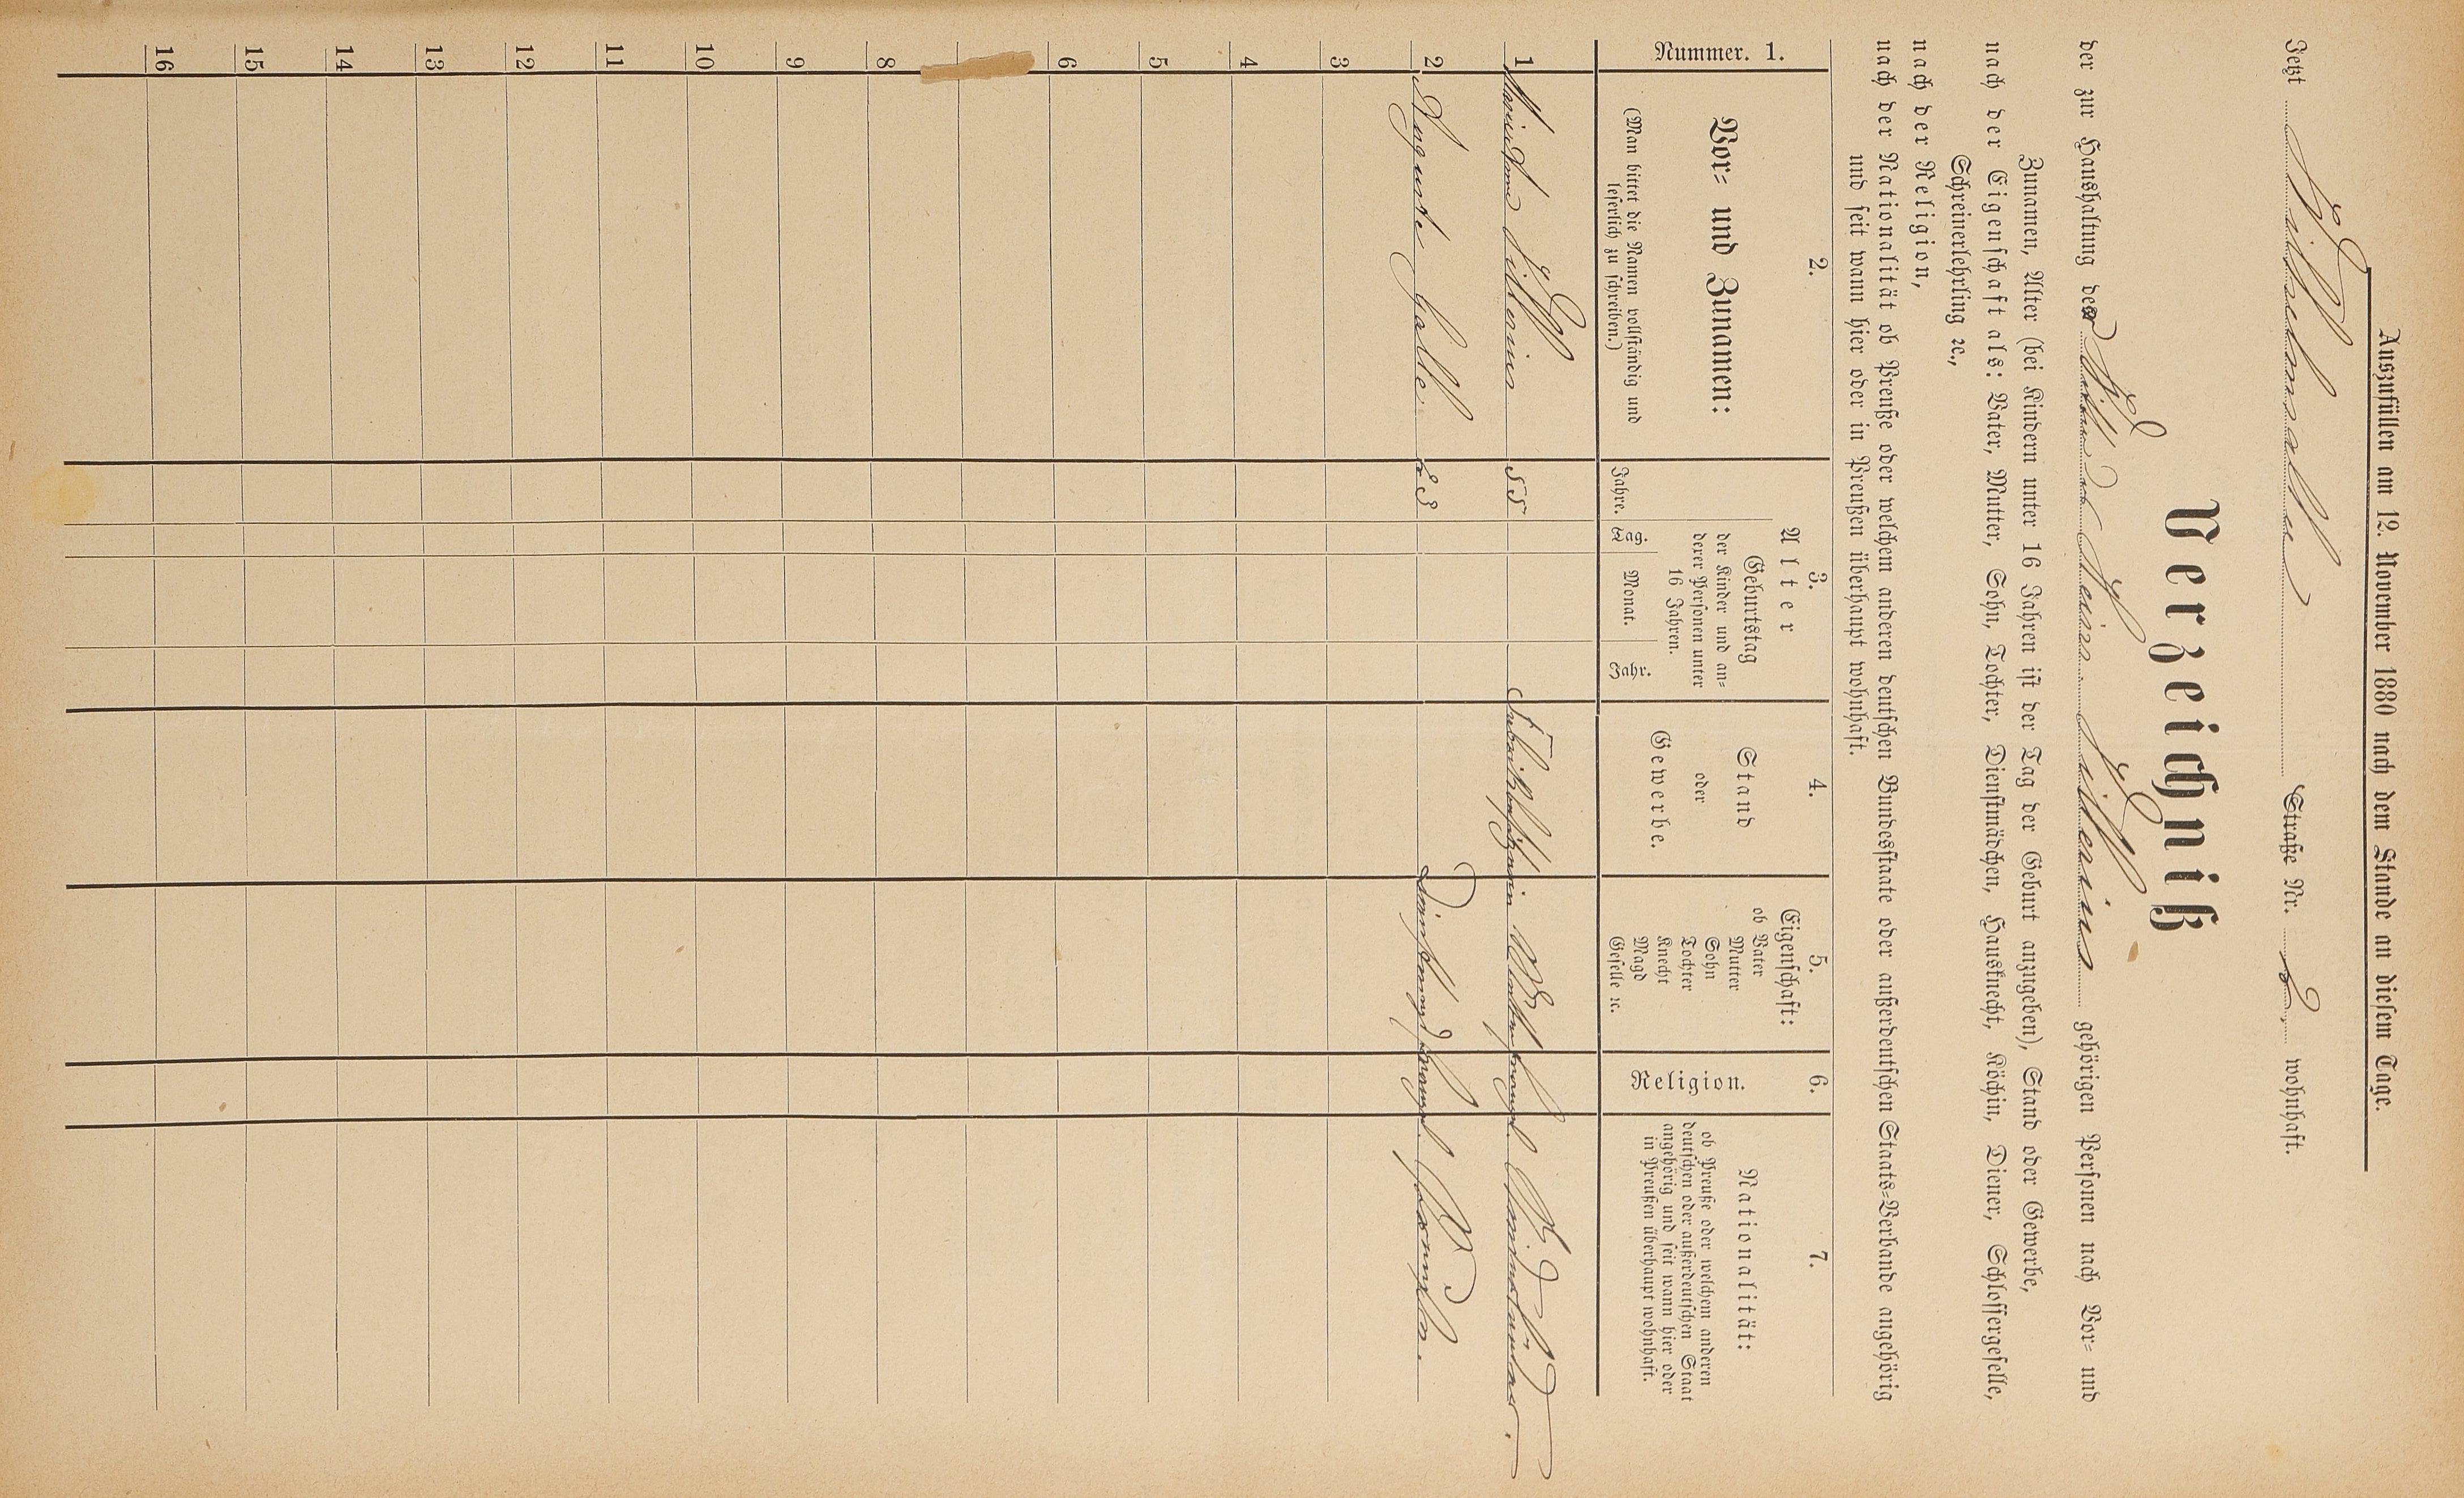 Auszufüllen am 12. November 1880 nach dem Stande an diesem Tage.
Jetzt Straße Nr. wohnhaft.
Verzeichniß
der zur Haushaltung der gehörigen Personen nach Vor- und
Zunamen, Alter (bei Kindern unter 16 Jahren ist der Tag der Geburt anzugeben), Stand oder Gewerbe,
nach der Eigenschaft als: Vater, Mutter, Sohn, Tochter, Dienstmädchen, Hausknecht, Köchin, Diener, Schlossergeselle,
Schreinerlehrling ꝛc.,
nach der Religion,
nach der Nationalität ob Preuße oder welchem anderen deutschen Bundesstaate oder außerdeutschen Staats-Verbande angehörig
und seit wann hier oder in Preußen überhaupt wohnhaft.
Nummer. 1.
2.
Vor- und Zunamen:
(Man bittet die Namen vollständig und
leserlich zu schreiben.)
3.
Alter
Jahre.
Geburtstag
der Kinder und an-
derer Personen unter
16 Jahren.
Tag. Monat. Jahr.
4.
Stand
oder
Gewerbe.
5.
Eigenschaft:
ob Vater
Mutter
Sohn
Tochter
Knecht
Magd
Geselle ꝛc.
6.
Religion.
7.
Nationalität:
ob Preuße oder welchem anderen
deutschen oder außerdeutschen Staat
angehörig und seit wann hier oder
in Preußen überhaupt wohnhaft.
1 55 Fabrikbesitzerin evangl.
2 Auguste 23 Dienstmagd evangl.
3
4
5
6
8
9
10
11
12
13
14
15
16